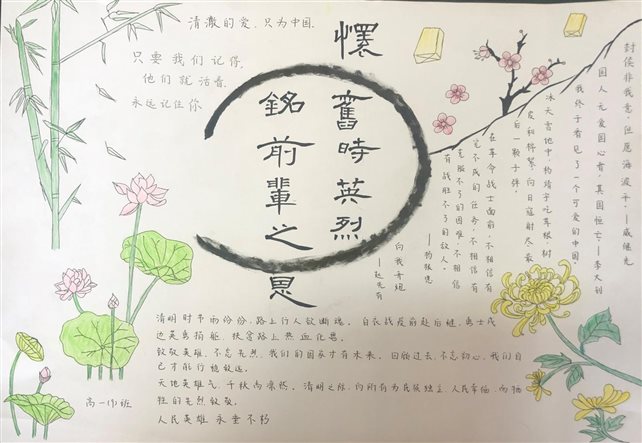 清澈的爱,只为中国.
只要我们记得,
他们就活着,
永远记住你
懷舊時英烈
銘前輩之恩
封侯非我意,但愿海波平。——戚继光
国人无爱国心者,其国恒亡。——李大钊
我终于看见了一个可爱的中国。
冰天雪地中,杨靖宇吃草根、树
皮和棉絮,向日寇射尽最
后一颗子弹。
在革命战士面前,不相信有
完不成的任务,不相信有
克服不了的困难,不相信
有战胜不了的敌人。
向我开炮
清明时节雨纷纷,路上行人欲断魂。白衣战疫前赴后继,勇士戍
边英勇捐躯,扶贫路上热血化恩。
致敬英雄,不忘先烈,我们的国家才有未来。回顾过去,不忘初心,我们自
己才能行稳致远。
天地英雄气,千秋尚凛然。清明之际,向所有为民族独立、人民幸福,而牺
牲的先烈致敬。
人民英雄永垂不朽
高一(1)班